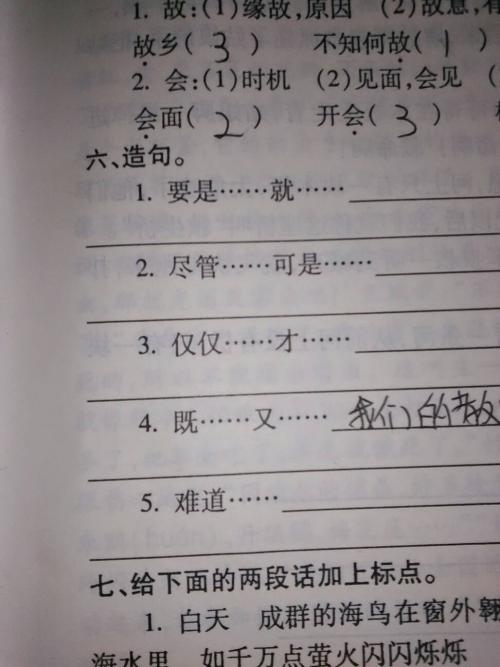 1. 故:(1)缘故,原因 (2)故意,有
故乡( 3 ) 不知何故( 1 )
2. 会:(1)时机 (2)见面,会见 (
会面( 2 ) 开会( 3 )
六、造句。
1. 要是……就……
2. 尽管……可是……
3. 仅仅……才……
4. 既……又…… 我们的教
5. 难道……
七、给下面的两段话加上标点。
1. 白天 成群的海鸟在窗外翱
海水里 如千万点萤火闪闪烁烁